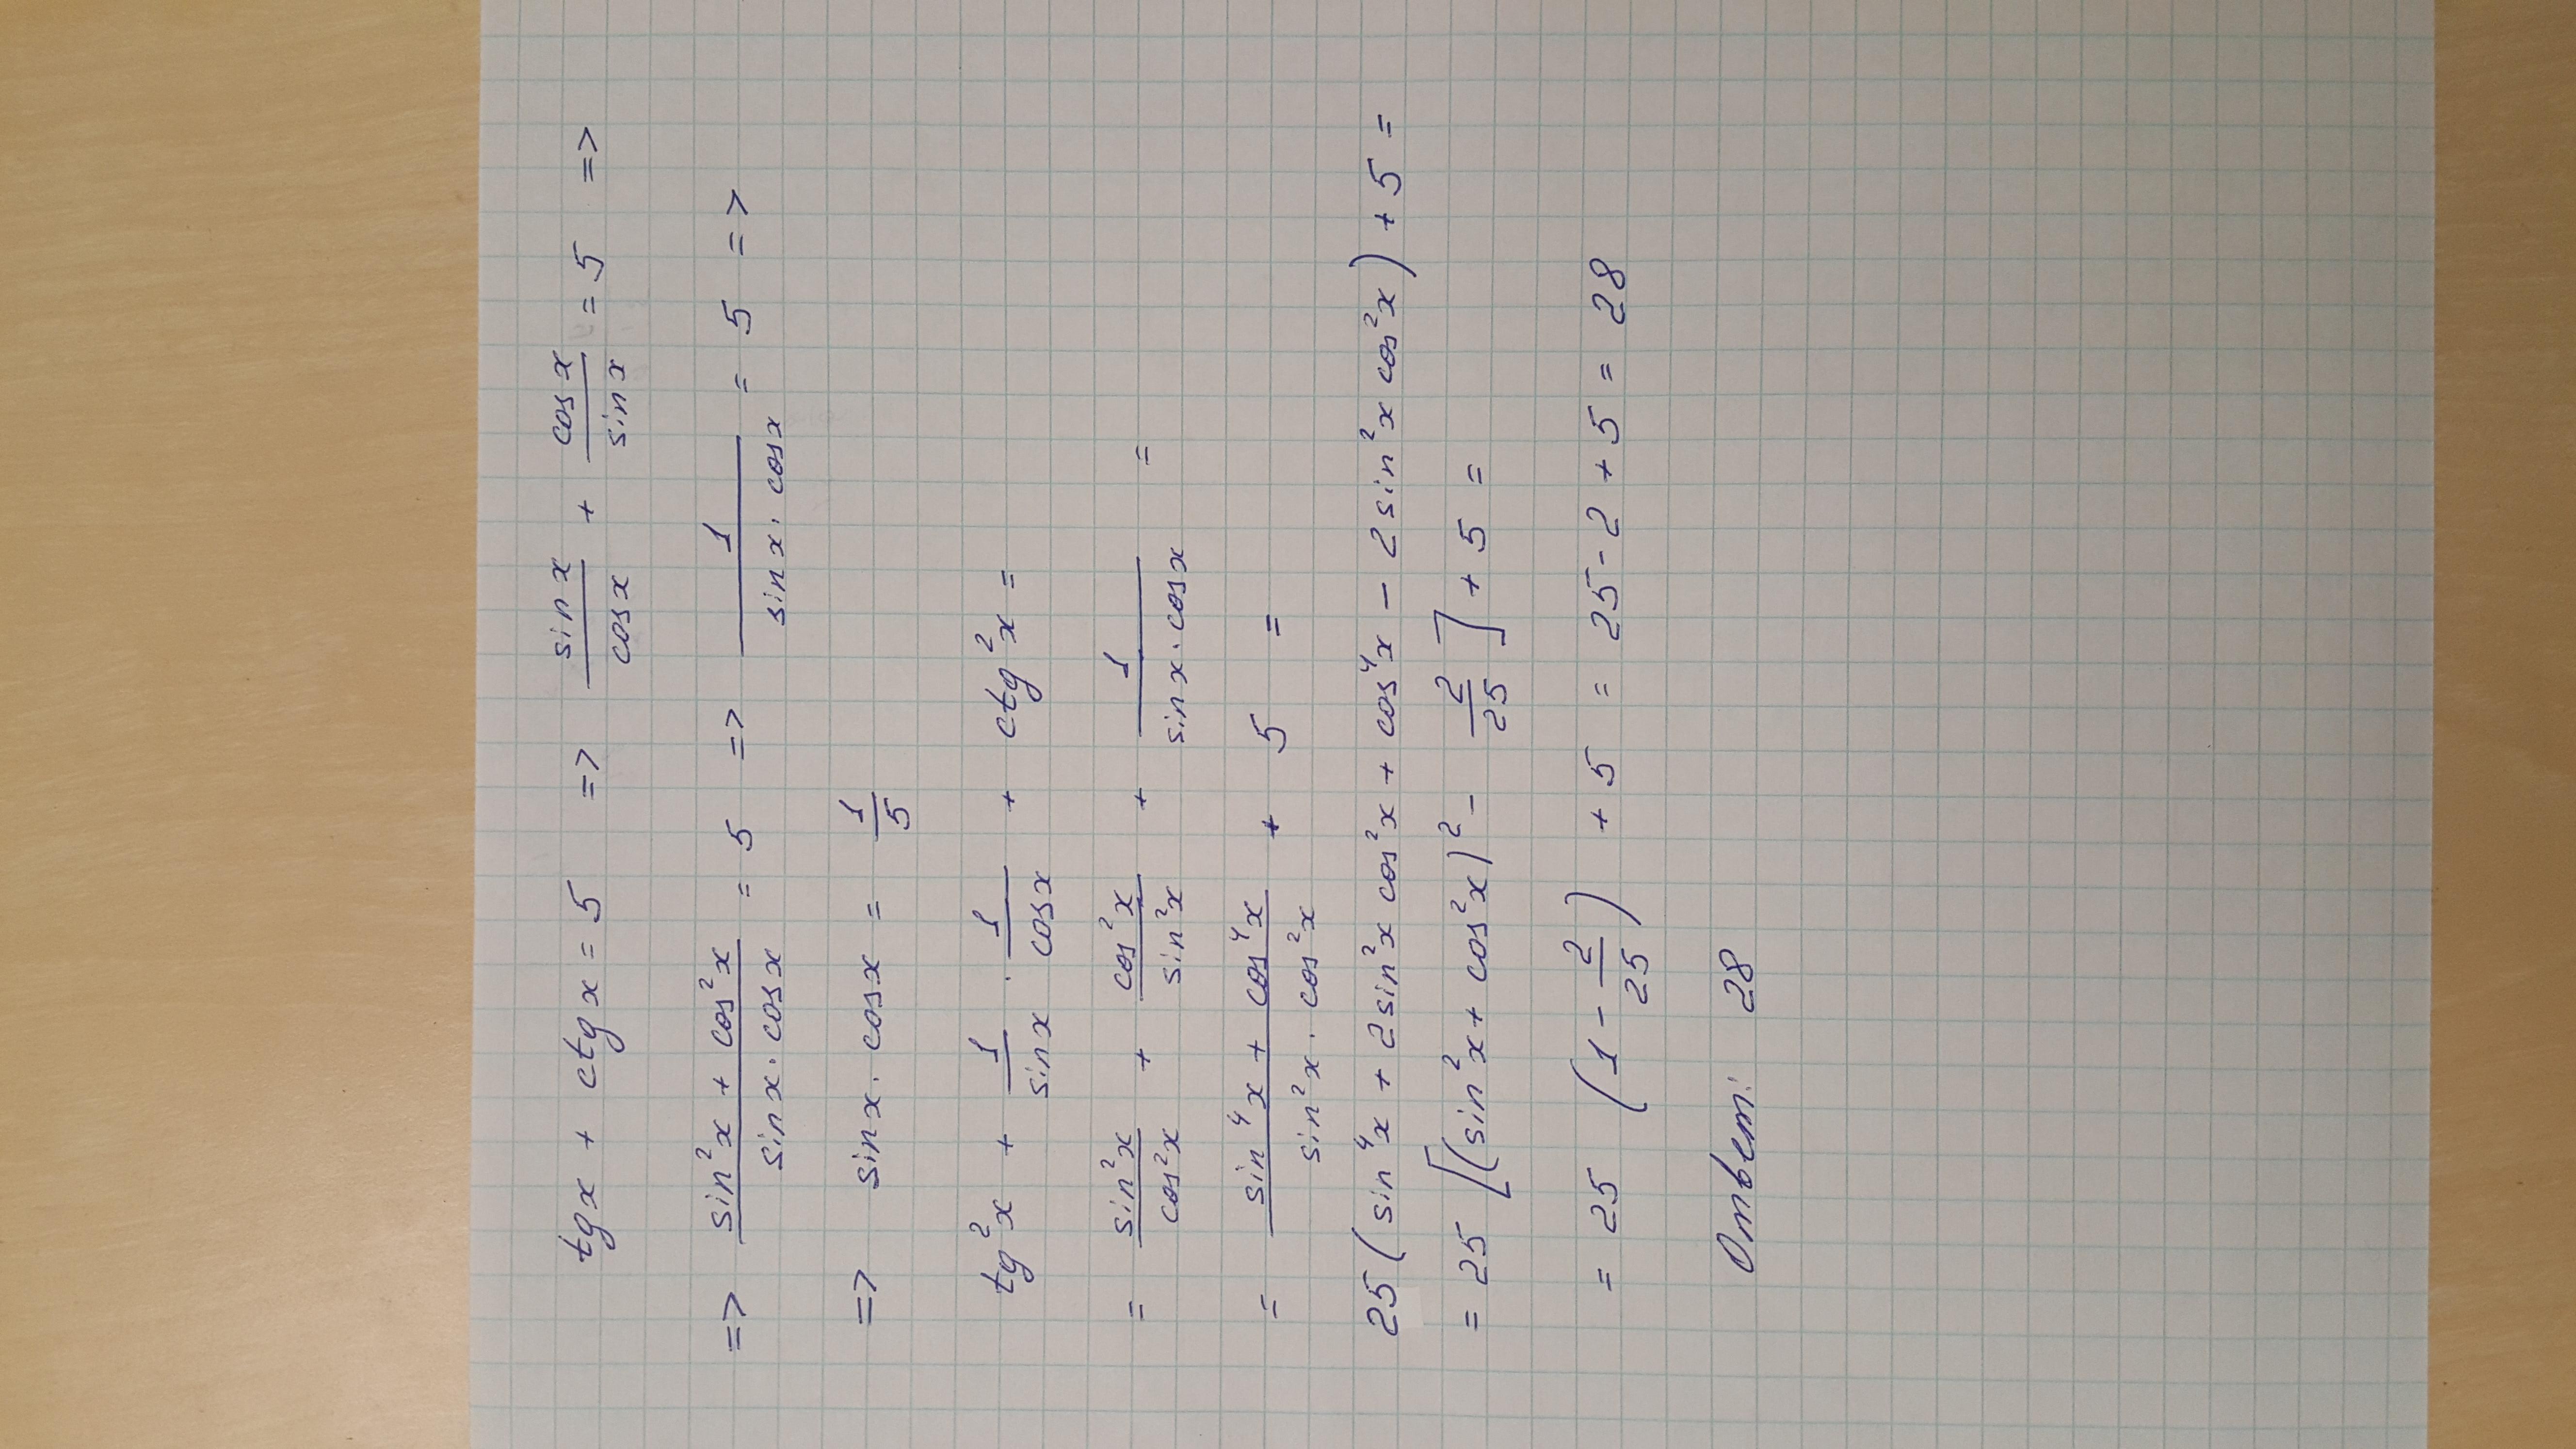 tg x + ctg x = 5 => sin x / cos x + cos x / sin x = 5 =>
=> (sin²x + cos²x) / (sin x · cos x) = 5 => 1 / (sin x · cos x) = 5 =>
=> sin x · cos x = 1/5
tg²x + 1/sin x · 1/cos x + ctg²x =
= sin²x / cos²x + cos²x / sin²x + 1 / (sin x · cos x) =
= (sin⁴x + cos⁴x) / (sin²x · cos²x) + 5 =
25 (sin⁴x + 2 sin²x cos²x + cos⁴x - 2 sin²x cos²x) + 5 =
= 25 [(sin²x + cos²x)² - 2/25] + 5 =
= 25 (1 - 2/25) + 5 = 25 - 2 + 5 = 28
Ответ: 28